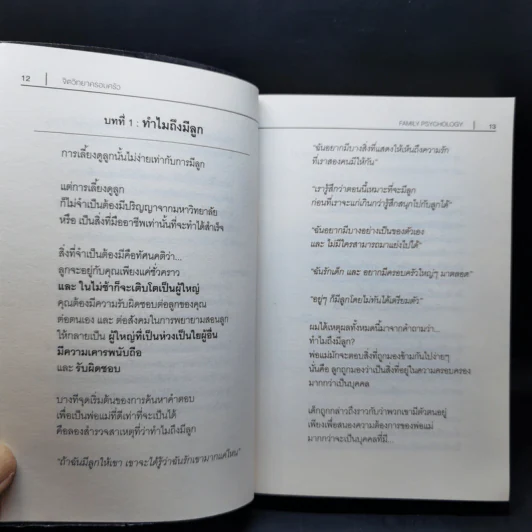 12 | จิตวิทยาครอบครัว
บทที่ 1 : ทำไมถึงมีลูก
การเลี้ยงดูลูกนั้นไม่ง่ายเท่ากับการมีลูก
แต่การเลี้ยงดูลูก
ก็ไม่จำเป็นต้องมีปริญญาจากมหาวิทยาลัย
หรือ เป็นสิ่งที่มืออาชีพเท่านั้นที่จะทำได้สำเร็จ
สิ่งที่จำเป็นต้องมีคือทัศนคติว่า...
ลูกจะอยู่กับคุณเพียงแค่ชั่วคราว
และ ในไม่ช้าก็จะเติบโตเป็นผู้ใหญ่
คุณต้องมีความรับผิดชอบต่อลูกของคุณ
ต่อตนเอง และ ต่อสังคมในการพยายามสอนลูก
ให้กลายเป็น ผู้ใหญ่ที่เป็นห่วงเป็นใยผู้อื่น
มีความเคารพนับถือ
และ รับผิดชอบ
บางทีจุดเริ่มต้นของการค้นหาคำตอบ
เพื่อเป็นพ่อแม่ที่ดีเท่าที่จะเป็นได้
คือลองสำรวจสาเหตุที่ว่าทำไมถึงมีลูก
"ถ้าฉันมีลูกให้เขา เขาจะได้รู้ว่าฉันรักเขามากแค่ไหน"
FAMILY PSYCHOLOGY | 13
"ฉันอยากมีบางสิ่งที่แสดงให้เห็นถึงความรัก
ที่เราสองคนมีให้กัน"
"เรารู้สึกว่าตอนนี้เหมาะที่จะมีลูก
ก่อนที่เราจะแก่เกินกว่ารู้สึกสนุกไปกับลูกได้"
"ฉันอยากมีบางอย่างเป็นของตัวเอง
และ ไม่มีใครสามารถมาแย่งไปได้"
"ฉันรักเด็ก และ อยากมีครอบครัวใหญ่ๆ มาตลอด"
"อยู่ๆ ก็มีลูกโดยไม่ทันได้เตรียมตัว"
ผมได้เหตุผลทั้งหมดนี้มาจากคำถามว่า...
ทำไมถึงมีลูก?
พ่อแม่มักจะตอบสิ่งที่ถูกมองข้ามกันไปง่ายๆ
นั่นคือ ลูกถูกมองว่าเป็นสิ่งที่อยู่ในความครอบครอง
มากกว่าเป็นบุคคล
เด็กถูกกล่าวถึงราวกับว่าพวกเขามีตัวตนอยู่
เพียงเพื่อสนองความต้องการของพ่อแม่
มากกว่าจะเป็นบุคคลที่มี...